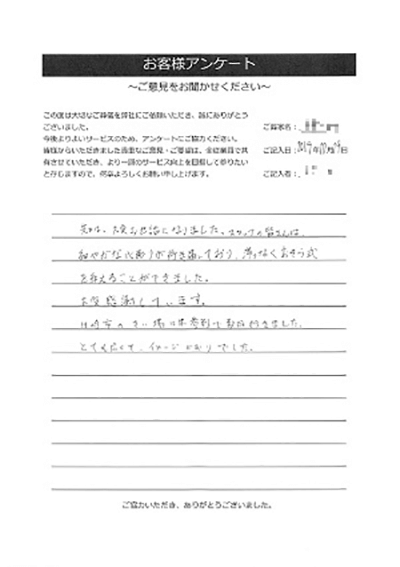 お客様アンケート
~ご意見をお聞かせください~
この度は大切なご葬儀を弊社にご依頼いただき、誠にありがとう
ございました。
今後よりよいサービスのため、アンケートにご協力ください。
皆様からいただきました貴重なご意見・ご要望は、全従業員で共
有させていただき、より一層のサービス向上を目指して参りたい
と存じますので、何卒よろしくお願い申し上げます。
ご葬家名:
ご記入日: 年 月 日
ご記入者:
先日は、大変お世話になりました。スタッフの皆さんは、
細やかな心配りが行き届いており、滞りなくお葬式
を終えることができました。
大変感謝しています。
とても広くて、イメージどおりでした。
ご協力いただき、ありがとうございました。